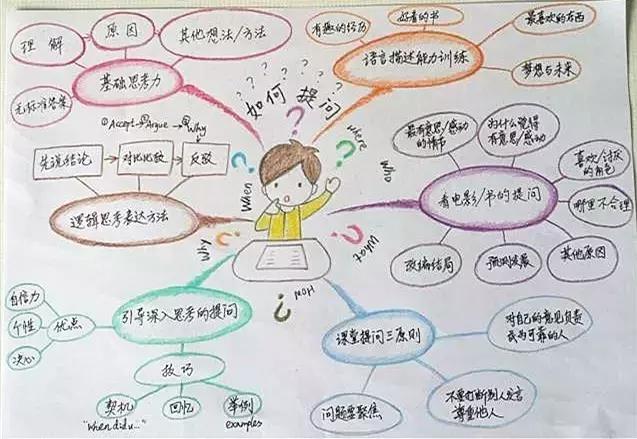 如何提问
When
where
Who
What
How
Why
基础思考力
理解
原因
其他想法/方法
无标准答案
语言描述能力训练
有趣的经历
好看的书
最喜欢的东西
梦想与未来
①Accept→②Argue→③Why
先说结论
对比比较
反驳
逻辑思考表达方法
看电影/书的提问
最有意思/感动
的情节
为什么觉得
有意思/感动
喜欢/讨厌
的角色
哪里不合理
其他原因
预测发展
改编结局
引导深入思考的提问
优点
自信力
个性
决心
技巧
契机
"When did u..."
回忆
举例
examples
课堂提问三原则
对自己的意见负责
成为可靠的人
不要打断别人发言
尊重他人
问题要聚焦